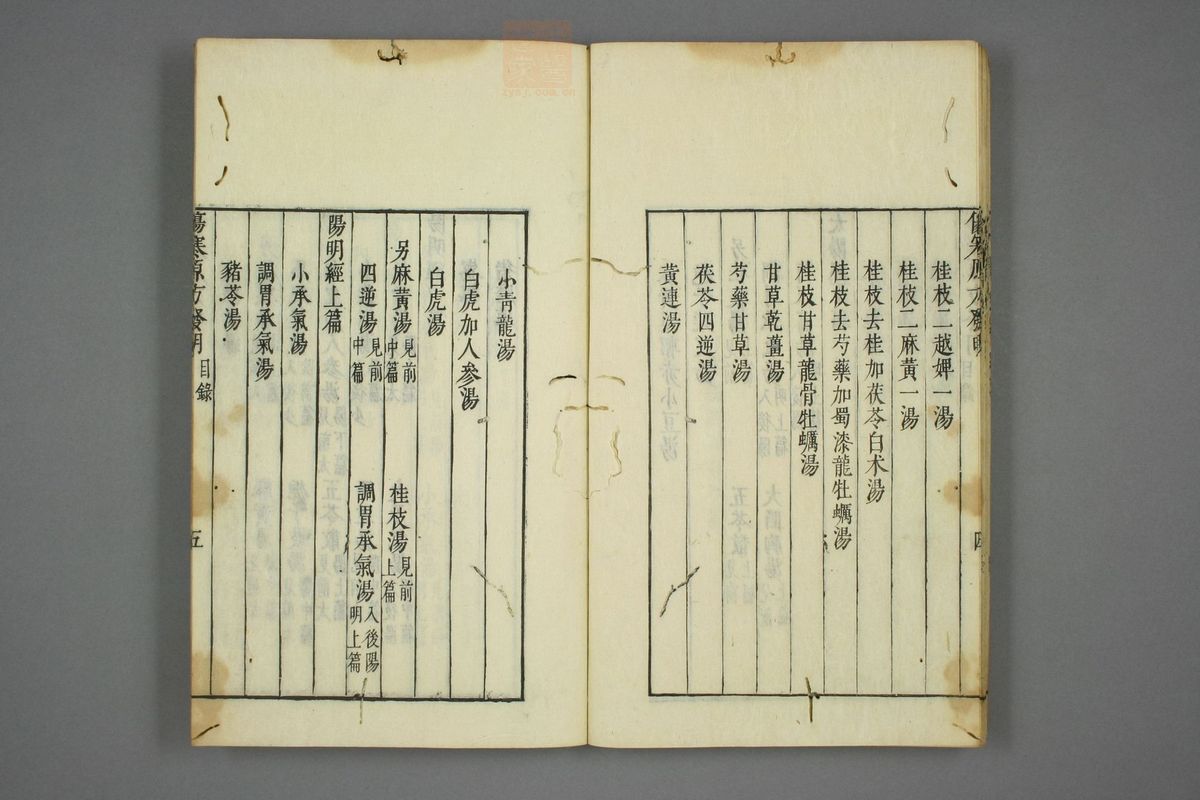 傷寒原方發明
目錄
四
桂枝二越婢一湯
桂枝二麻黃一湯
桂枝去桂加茯苓白术湯
桂枝去芍藥加蜀漆龍牡蠣湯
桂枝甘草龍骨牡蠣湯
甘草乾薑湯
芍藥甘草湯
茯苓四逆湯
黃連湯
小青龍湯
白虎加人參湯
白虎湯
另麻黃湯見前中篇 桂枝湯見前上篇
四逆湯見前中篇 調胃承氣湯入後陽明上篇
陽明經上篇
小承氣湯
調胃承氣湯
豬苓湯
傷寒原方發明
目錄
五
zysj.com.cn